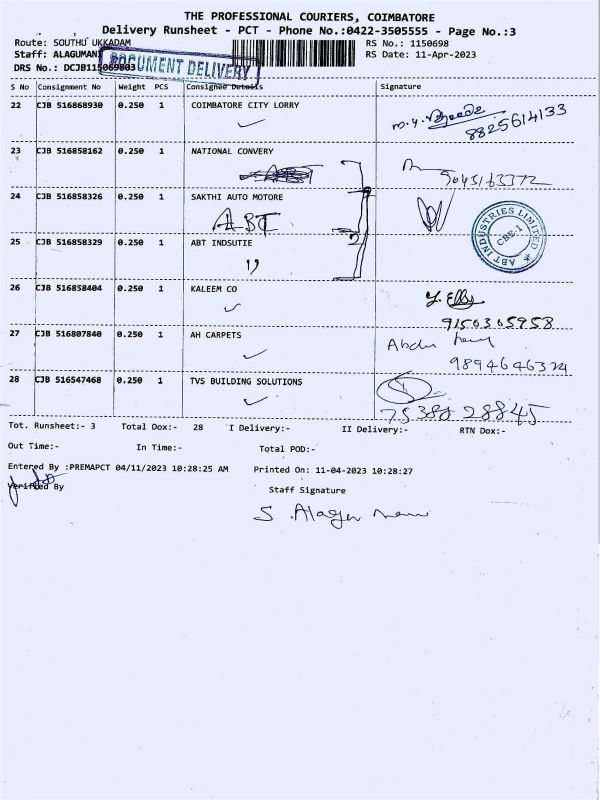 THE PROFESSIONAL COURIERS, COIMBATORE
Delivery Runsheet - PCT - Phone No.:0422-3505555 - Page No.:3
Route: SOUTHU UKKADAM
RS No.: 1150698
Staff: ALAGUMANI
RS Date: 11-Apr-2023
DRS No.: DCJB115069803
DOCUMENT DELIVERY
S No Consignment No Weight PCS Consignee Details Signature
22 CJB 516868930 0.250 1 COIMBATORE CITY LORRY
8825614133
23 CJB 516858162 0.250 1 NATIONAL CONVERY
24 CJB 516858326 0.250 1 SAKTHI AUTO MOTORE
ABT
ABT INDUSTRIES LIMITED
CBE-1
25 CJB 516858329 0.250 1 ABT INDSUTIE
26 CJB 516858404 0.250 1 KALEEM CO
9150305958
27 CJB 516807840 0.250 1 AH CARPETS
28 CJB 516547468 0.250 1 TVS BUILDING SOLUTIONS
Tot. Runsheet:- 3 Total Dox:- 28 I Delivery:- II Delivery:- RTN Dox:-
Out Time:- In Time:- Total POD:-
Entered By :PREMAPCT 04/11/2023 10:28:25 AM Printed On: 11-04-2023 10:28:27
Verified By
Staff Signature